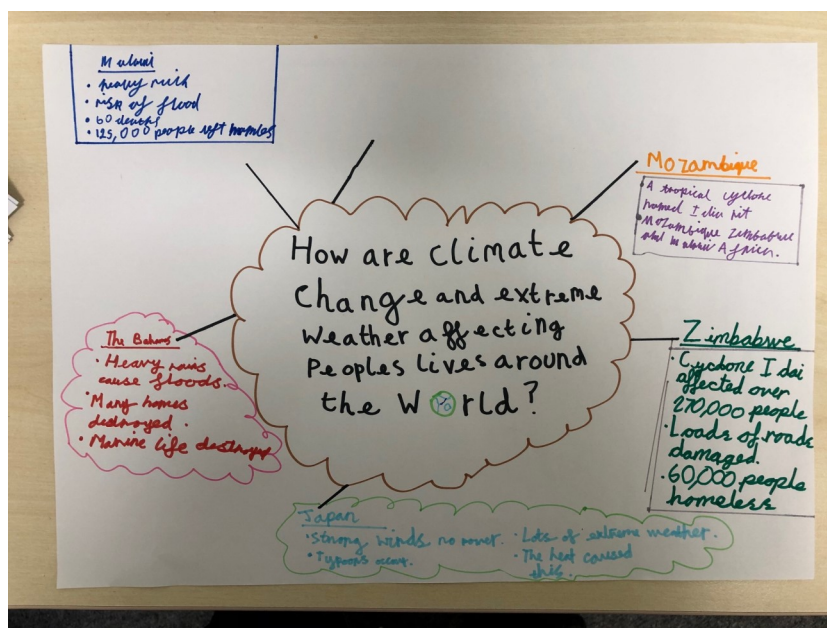 Malawi
• heavy
• risk of flood
• 60 deaths
• 125,000 people left homles
Mozambique
• A tropical cyclone
named Idai hit
• Mozambique Zimbabwe
and malawi Africa.
How are climate
change and extreme
weather affecting
Peoples lives around
the World?
The Bahams
• Heavy rains
cause floods.
• Many homes
destroyed.
• Marine life destroyed
Zimbabwe
• Cyclone Idai
affected over
270,000 people
• Loads of roads
damaged.
• 60,000 people
homeless
Japan
• Strong winds no power.
• Typoons occur.
• Lots of extreme weather.
• The heat caused
this.